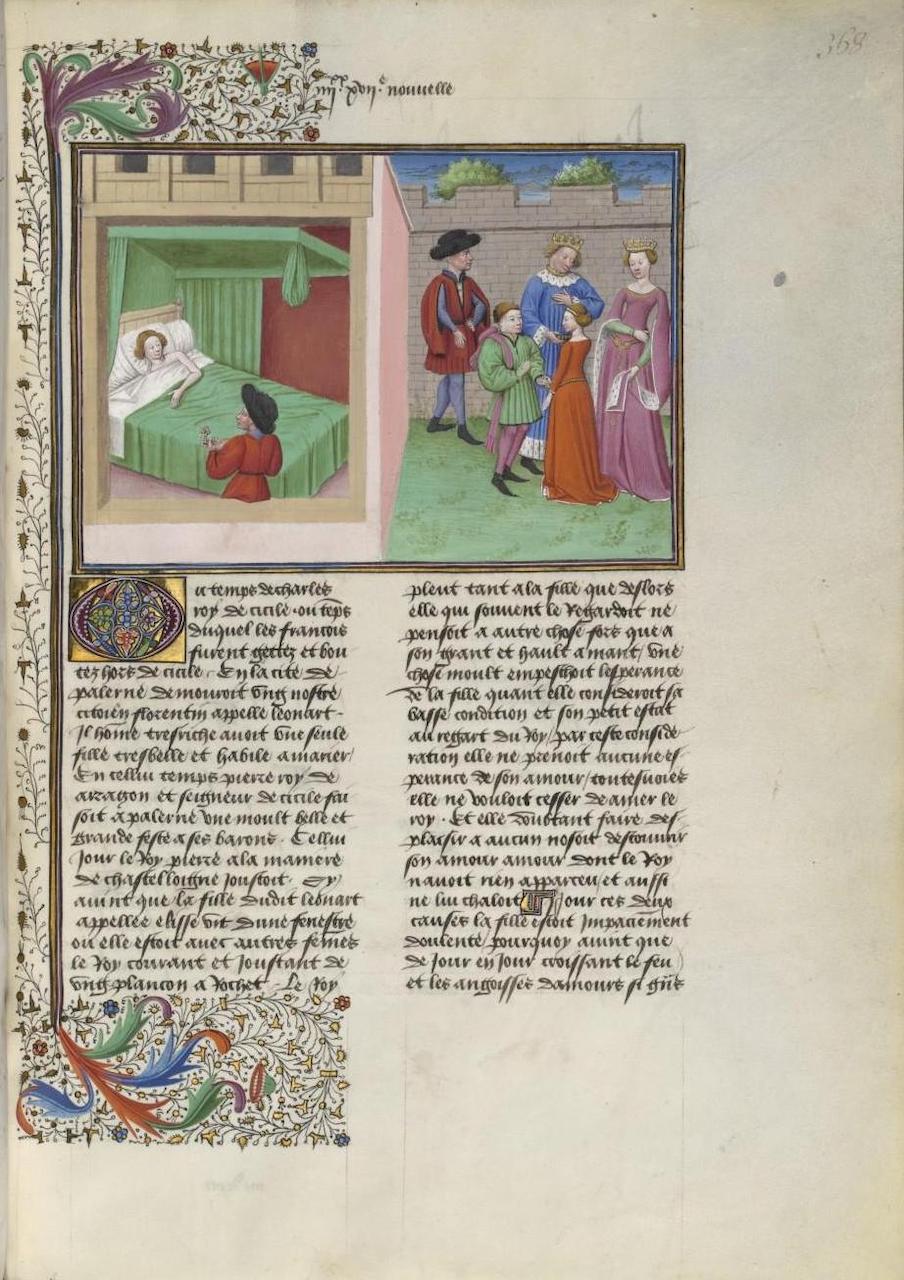 368
iiiixx xvii.e nouvelle
u temps de charles
roy de cicile. ou teps
duquel les francois
furent gectez et bou
tez hors de cicile. En la cite de
palerne demouroit ung nostre
citoien florentin appelle leonart.
Il home tresriche avoit une seule
fille tresbelle et habile a marier/
En cellui temps pierre roy de
arragon et seigneur de cicile fai
soit a palerne une moult belle et
grande feste a ses barons. Cellui
Jour le Roy pierre a la maniere
de chastelloigne joustoit. Or
avint que la fille dudit leonart
appellee elisse vit dune fenestre
ou elle estoit avec autres femes
le Roy courant et joustant de
ung plancon a Rochet. Le Roy
pleut tant a la fille que deslors
elle qui souvent le Regardoit ne
pensoit a autre chose fors que a
son grant et hault amant/ une
chose moult empeschoit lesperance
de la fille quant elle consideroit sa
basse condition et son petit estat
au regart du Roy/ par ceste conside
ration elle ne prenoit aucune es
perance de son amour/ toutesvoies
elle ne vouloit cesser de amer le
roy. Et elle doubtant faire des
plaisir a aucun nosoit descouvrir
son amour amour dont le Roy
navoit rien apparceu/ et aussi
ne lui chaloit Pour ces deux
causes la fille estoit Impaciement
doulente/ pourquoy avint que
de Jour en Jour croissant le feu
et les angoisses damours si